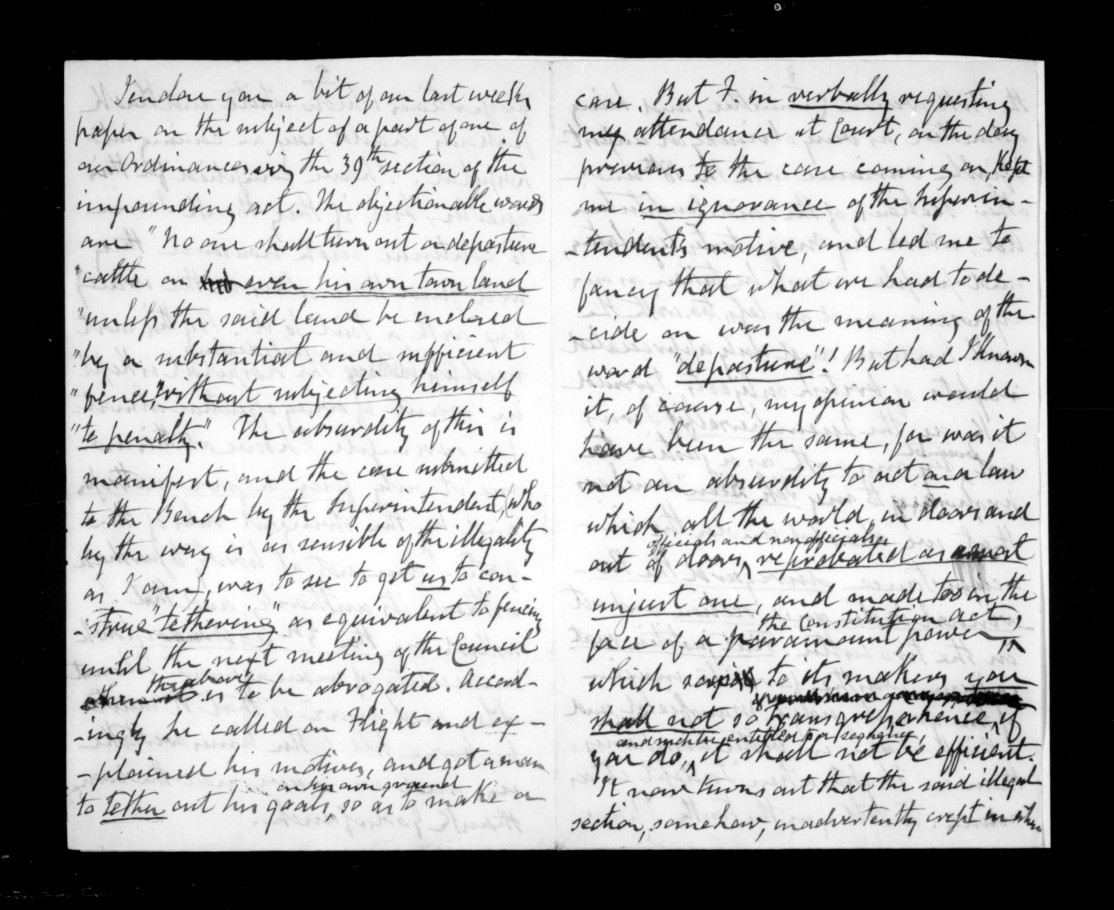 I endose you a bit of our last week's
paper on the subject of a part of one of
our Ordinances viz the 39th section of the
impounding act. The objectionable words
are "No one shall turn out or depasture
"cattle on even his own town land
"unless the said land be enclosed
"by a substantial and sufficient
"fence" without subjecting himself
"to penalty." The absurdity of this is
manifest, and the case submitted
to the Bench by the Superintendent, (who
by the way is as sensible of the illegality
as I am, was to see to get us to con-
-strue "tethering" as equivalent to fencing
until the next meeting of the Council
the above is to be abrogated. Accord-
-ingly he called on Flight and ex-
-plained his motives, and got a man
on his own ground
to tether out his goats, so as to make a
case. But F. in verbally requesting
my attendance at Court, on the day
previous to the case coming on, kept
me in ignorance of the Superin-
-tendent's motive, and led me to
fancy that what we had to de-
-cide on was the meaning of the
word "depasture"! But had I known
it, of course, my opinion would
have been the same, for was it
not an absurdity to act on a law
which all the world, in doors and
officials and nonofficials,
out of doors, reprobated as
unjust one, and made too in the
the constitution act,
face of a paramount power
which says to its makers you
shall not so transgress hence, if
you do, it shall not be efficient.
It now turns out that the said illegal
section, somehow, inadvertently crept in when